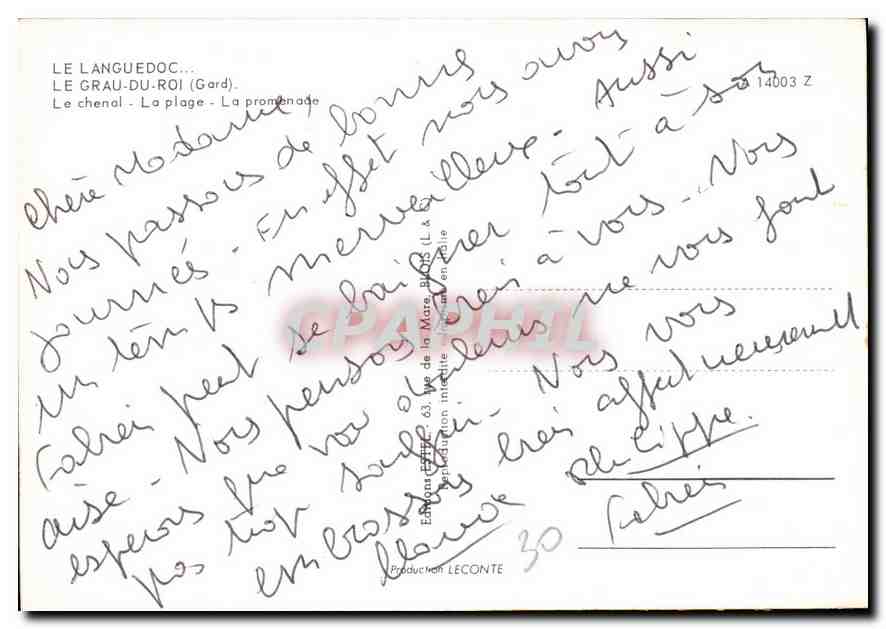 LE LANGUEDOC...
LE GRAU-DU-ROI (Gard).
Le chenal - La plage - La promenade
14003 Z
Chère Madame,
Nous passons de bonnes
journées. En effet nous avons
un temps merveilleux. Aussi
Fabien peut se baigner tout à son
aise. Nous pensons bien à vous. Nous
espérons que vos douleurs ne vous font
pas trop souffrir. Nous vous
embrassons bien affectueusement
Philippe.
Fabien
Editions ESTEL - 63, rue de la Mare, BLOIS (L. & C.)
Reproduction interdite Imprimé en Italie
CPAPHIL
30
Production LECONTE